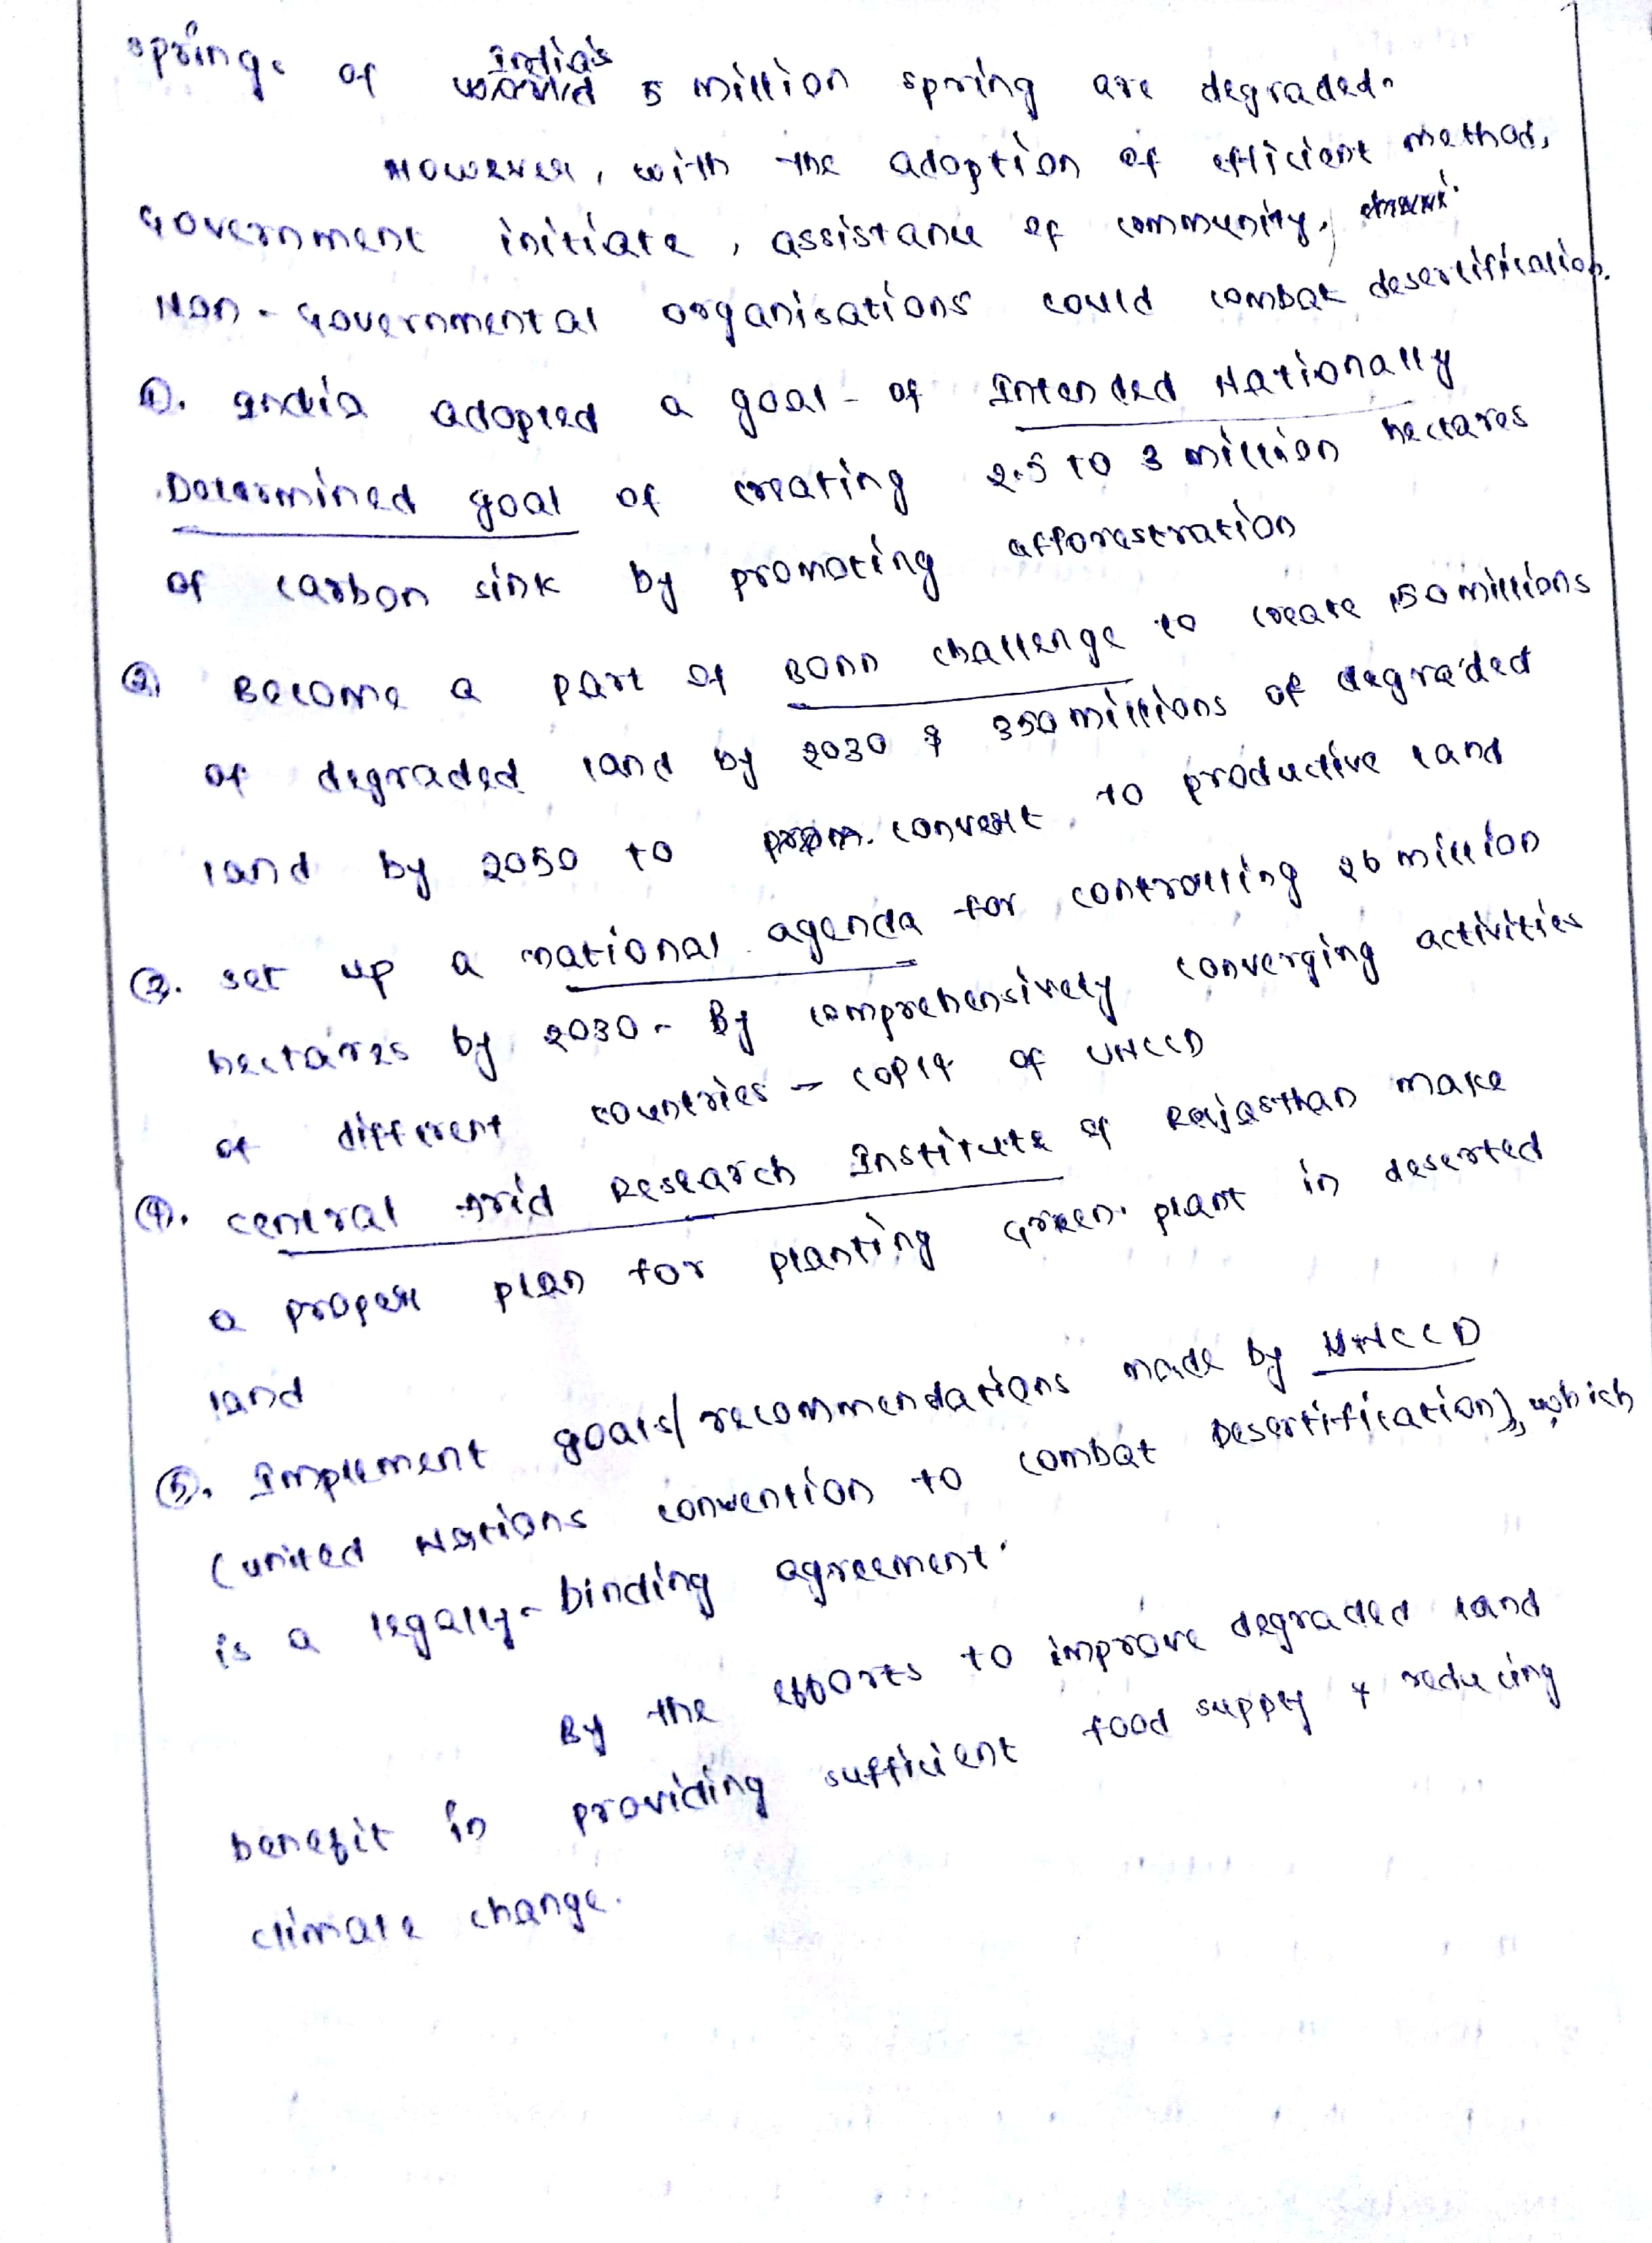 springs of India's 5 million spring are degraded.
However, with the adoption of efficient method,
Government initiate, assistance of community,
Non-Governmental organisations could combat desertification.
①. India adopted a goal of Intended Nationally
Determined goal of creating 2.5 to 3 million hectares
of carbon sink by promoting afforestration
②. Become a part of Bonn challenge to create 150 millions
of degraded land by 2030 & 350 millions of degraded
land by 2050 to convert to productive land
③. set up a national agenda for controlling 26 million
hectares by 2030 - By comprehensively converging activities
of different countries - COP14 of UNCCD
④. central Arid Research Institute of Rajasthan make
a proper plan for planting Green plant in deserted
land
⑤. Implement goals/recommendations made by UNCCD
(United Nations convention to combat Desertification), which
is a legally-binding agreement.
By the efforts to improve degraded land
benefit in providing sufficient food supply & reducing
climate change.